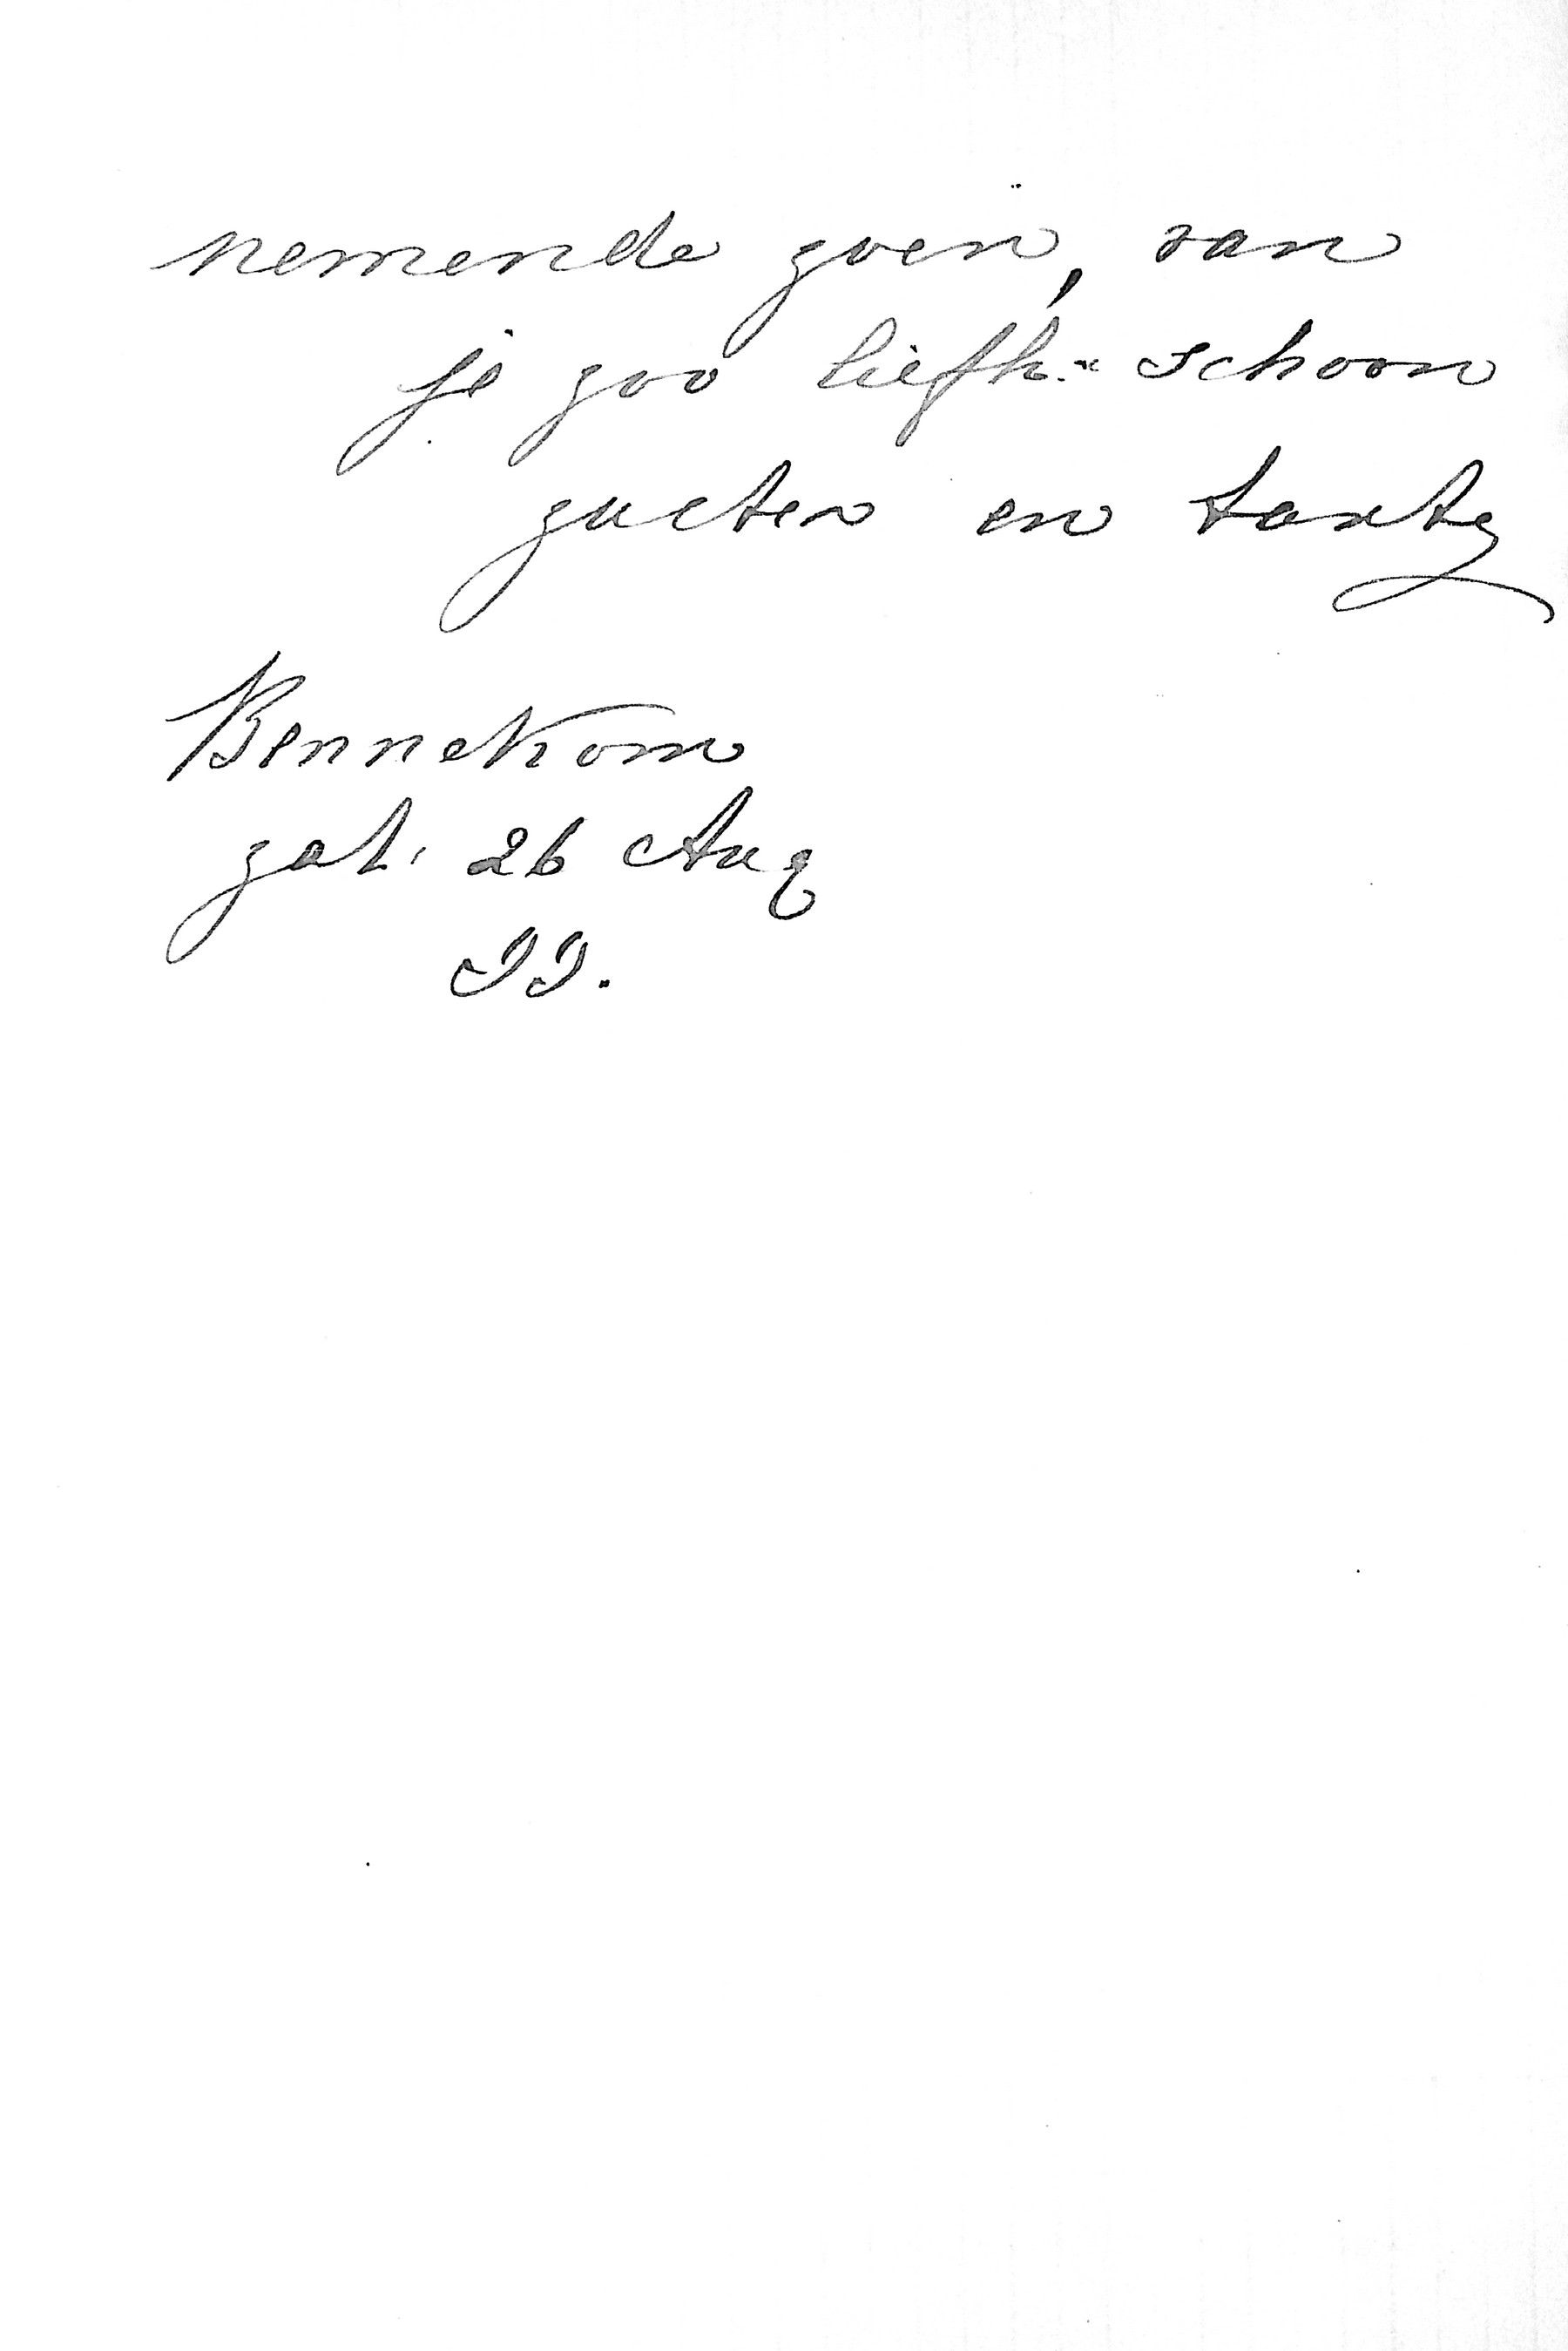 nemende zoen, van
je zoo liefh.- schoon
zuster en tante
Bennekom
zat. 26 Aug
99.